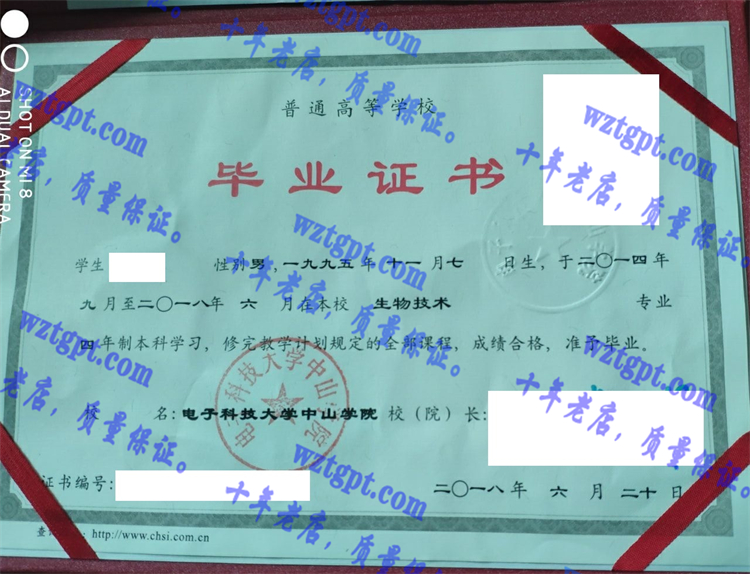 普通高等学校
毕业证书
学生 性别男,一九九五年十一月七日生,于二〇一四年
九月至二〇一八年六月在本校 生物技术 专业
四年制本科学习,修完教学计划规定的全部课程,成绩合格,准予毕业。
校名:电子科技大学中山学院 校(院)长:
证书编号:
二〇一八年六月二十日
http://www.chsi.com.cn
电子科技大学中山学院
SHOT ON MI 8
AI DUAL CAMERA
wztgpt.com
十年老店,质量保证。
wztgpt.com
十年老店,质量保证。
wztgpt.com
十年老店,质量保证。
wztgpt.com
十年老店,质量保证。
wztgpt.com
十年老店,质量保证。
wztgpt.com
十年老店,质量保证。
wztgpt.com
十年老店,质量保证。